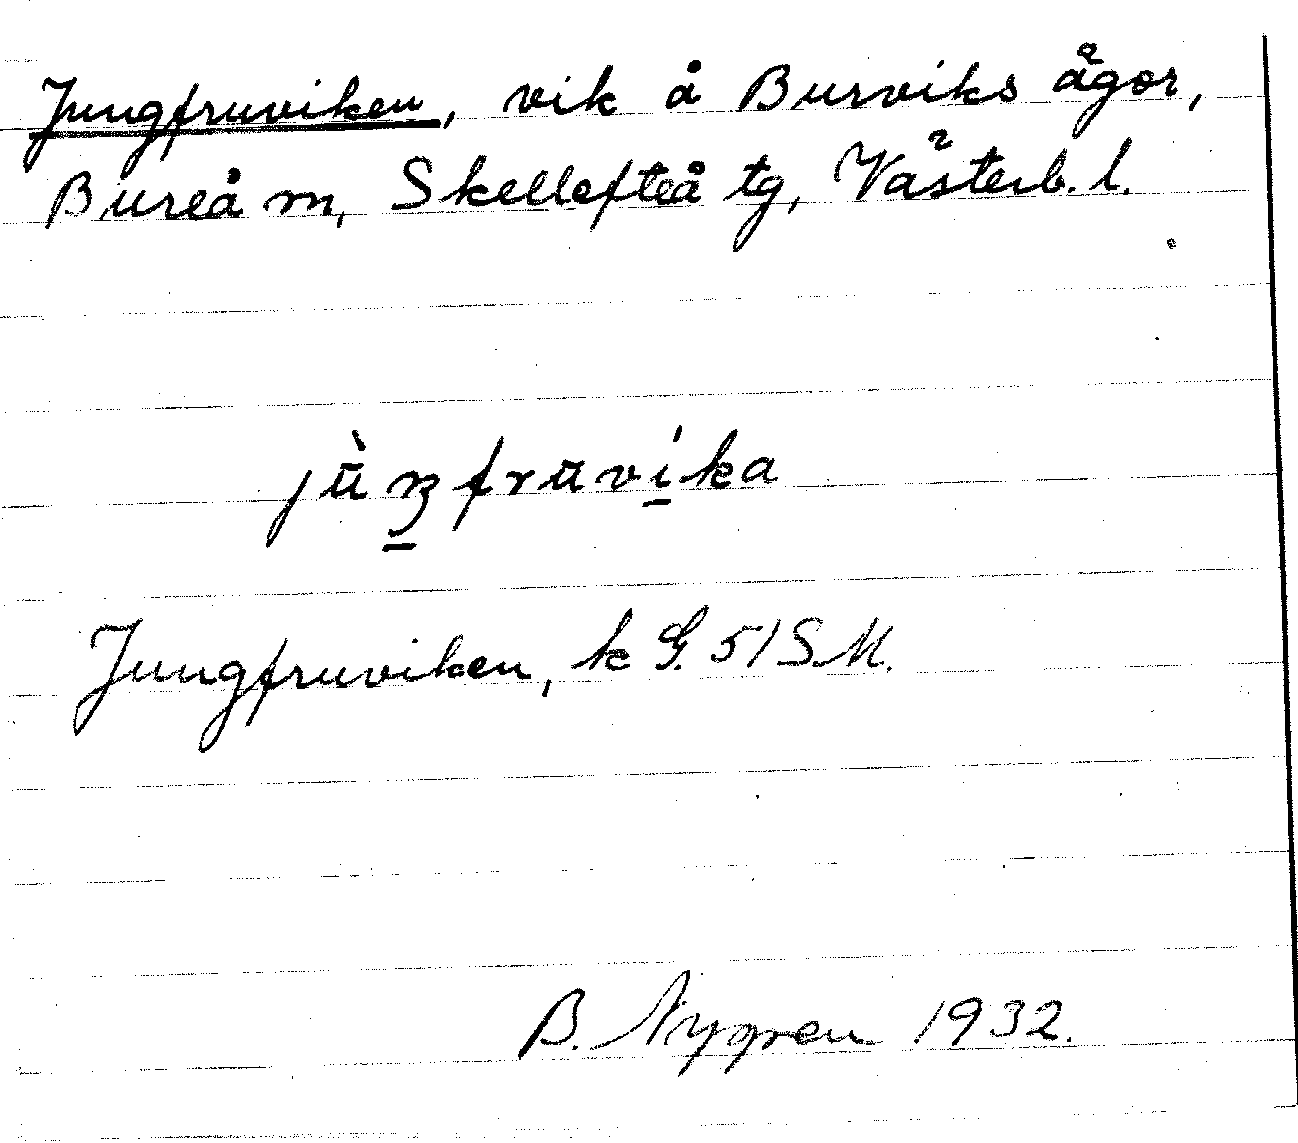 Jungfruviken, vik å Burviks ägor,
Bureå m, Skellefteå tg, Västerb. l.
Jungfruviken, k G. 51 S.M.
B. Nygren 1932.